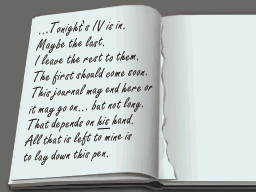 ...Tonight's IV is in.
Maybe the last.
I leave the rest to them.
The first should come soon.
This journal may end here or
it may go on... but not long.
That depends on his hand.
All that is left to mine is
to lay down this pen.